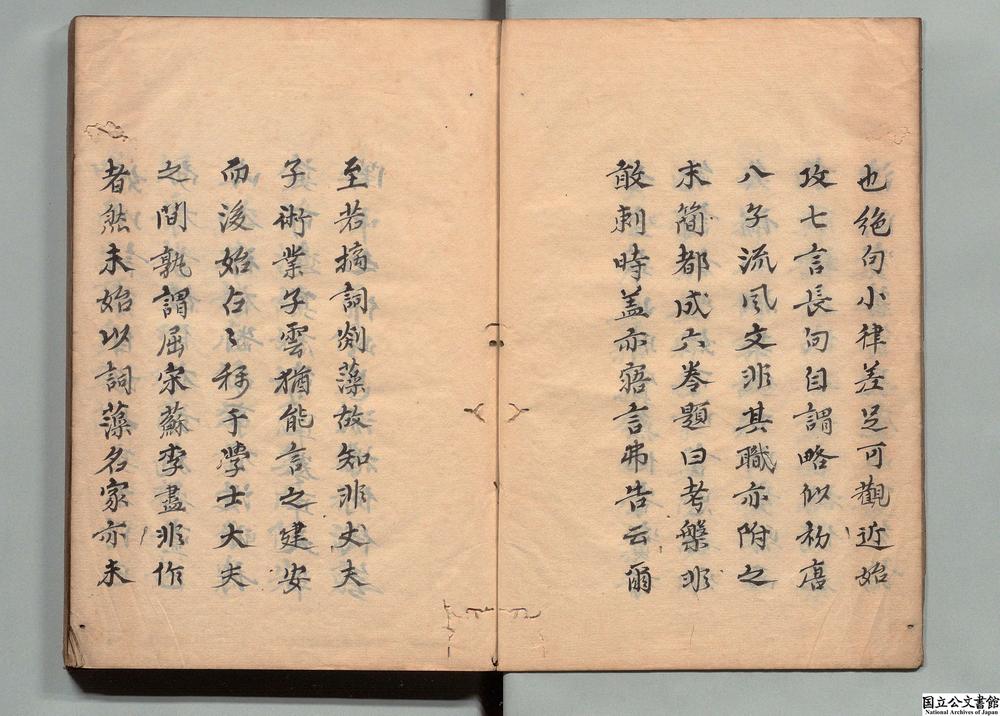 也絶句小律差足可觀近始
攻七言長句自謂略似初唐
八子流風文非其職亦附之
末簡都成六卷題曰考槃非
敢刺時盖亦寤言弗告云爾
至若摛詞剡藻故知非丈夫
子術業子雲猶能言之建安
而後始占〻称于學士大夫
之間孰謂屈宋蘇李盡非作
者然未始以詞藻名家亦未
国立公文書館
National Archives of Japan